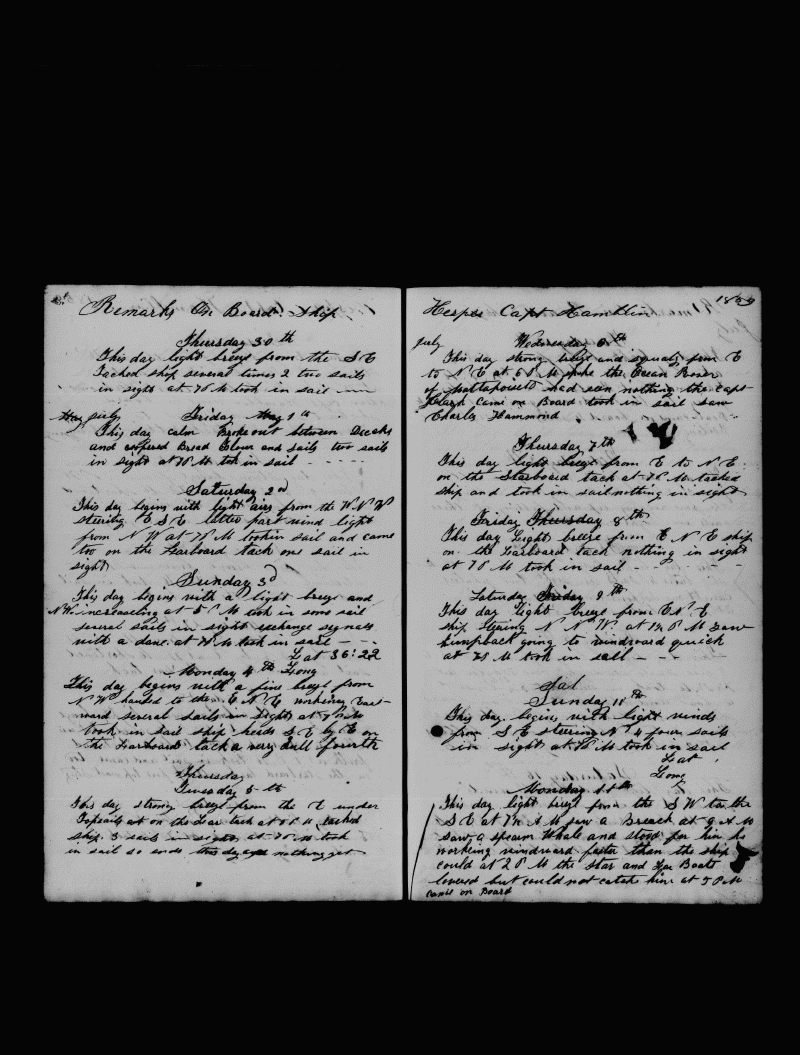 Remarks On Board Ship
Thursday 30th
This day light breeze from the S E
Tacked ship several times 2 two sails
in sight at 7 P M took in sail
July Friday 1th
This day calm Broke out between Decks
and Bread and sails two sails
in sight at 7 P M tok in sail
Saturday 2d
This day begins with light airs from the W N W
steering E S E latter part wind light
from N W at 7 P M took in sail and came
too on the Larboard tack one sail in
sight
Sunday 3d
This day begins with a light breeze and
N W increasing at 5 P M took in some sail
several sails in sight exchange signals
with a dane at 7 P M took in sail
Lat 36:22
Monday 4th Long
This day begins with a fine breeze from
N W hauled to the E N E working East-
ward several sails in sight at 7 P M
took in sail ship heads S E by E on
the Larboard tack a very dull fourth
Thursday
Tuesday 5th
This day strong breeze from the E under
Topsails at on the Lar tack at 6 P M tacked
ship 3 sails in sight at 7 P M took
in sail so ends this day nothing yet
Hesper Capt Hamblin 1859
July Wedersday 6th
This day strong breeze and squaly from E
to N E at 6 P M spoke the Ocean Rover
of mattapoisett had seen nothing the capt
came on Board took in sail saw
Charles Hammond
Thursday 7th
This day light breeze from E to N E
on the Starboard tack at 7 P M tacked
ship and took in sail nothing in sight
Friday Thursday 8th
This day Light breeze from E N E ship
on the Larboard tack nothing in sight
at 7 P M took in sail
Saturday Friday 9th
This day Light breeze from E N E
ship steering N N W at 1 P M saw
humpback going to windward quick
at 7 P M took in sail
Sat
Sunday 10th
This day begins with light winds
from S E steering N 4 four sails
in sight at 7 P M took in sail
Lat
Long
Monday 11th
This day light breeze from the S W to the
S E at 7 A M saw a Breach at 9 A M
saw a spearm Whale and stood for him he
working windward faster than the ship
could at 2 P M the star and Lar Boats
lowered but could not catch him at 5 P M
came on Board